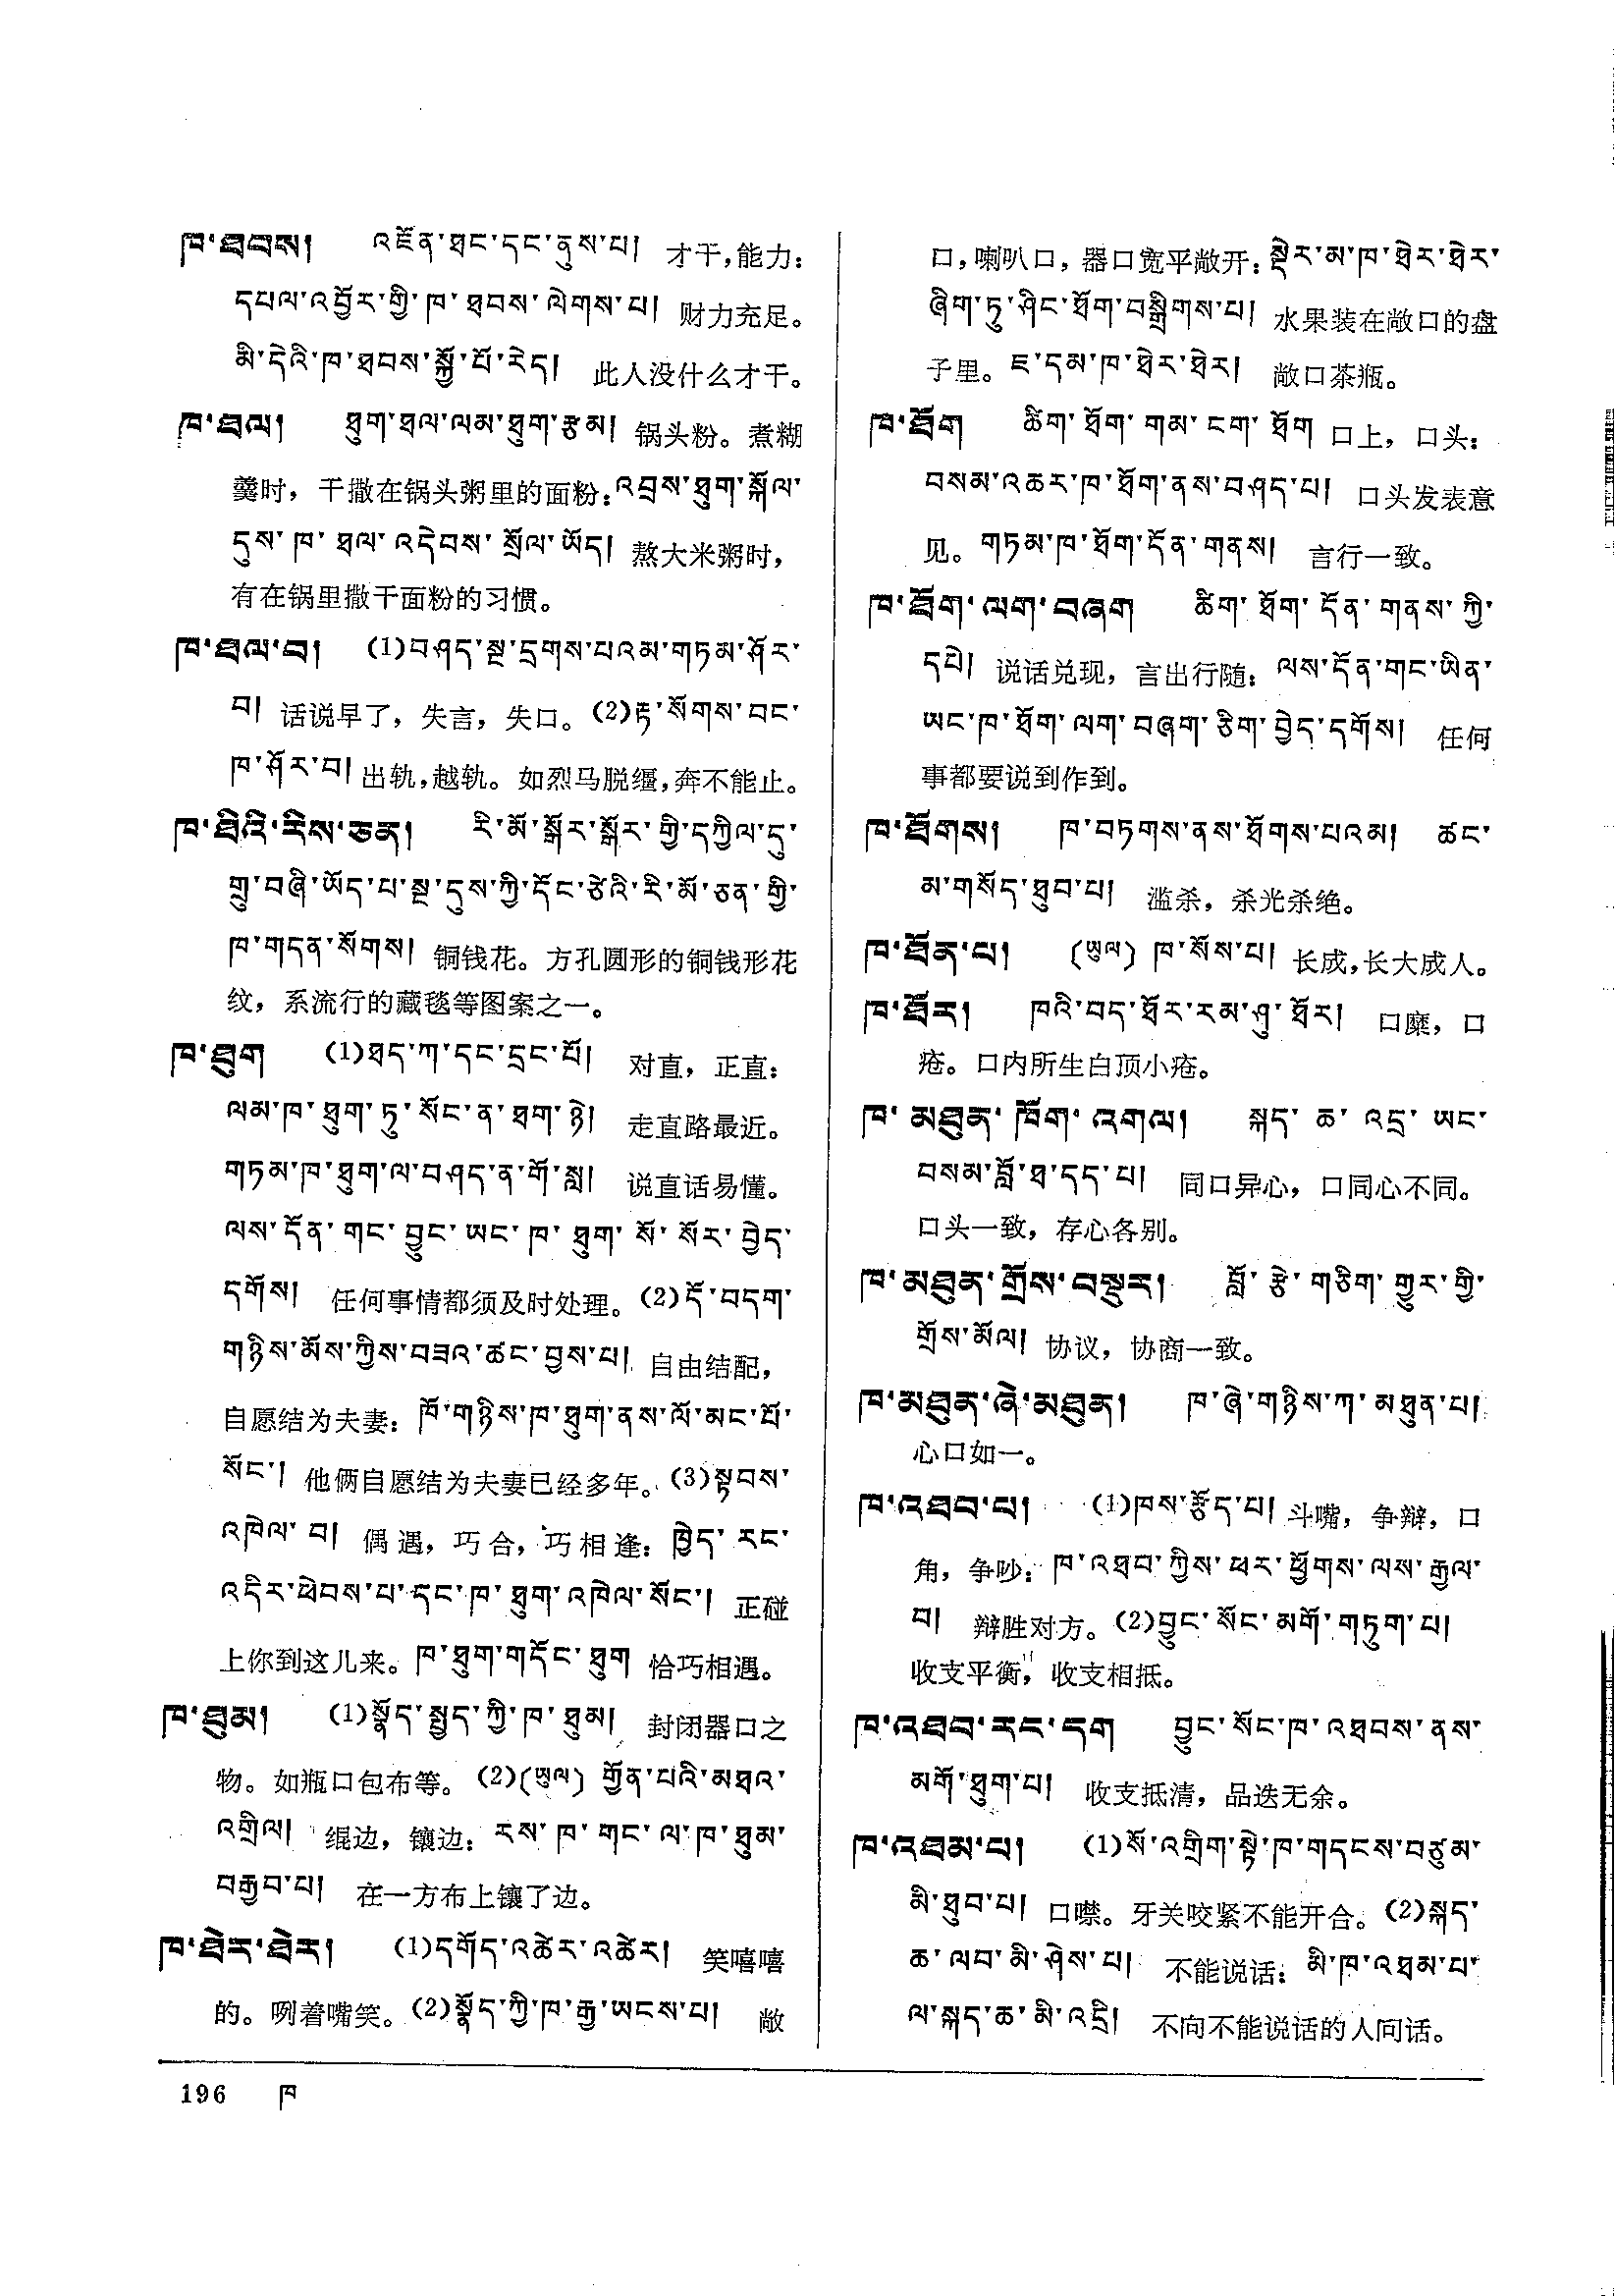 ཁ་ཐབས། འཇོན་ཐང་དང་ནུས་པ། 才干,能力:
དཔལ་འབྱོར་གྱི་ཁ་ཐབས་ལེགས་པ། 财力充足。
མི་དེའི་ཁ་ཐབས་སྐྱོ་པོ་རེད། 此人没什么才干。
ཁ་ཐལ། ཐུག་ཐལ་ལམ་ཐུག་རྩམ། 锅头粉。煮糊
羹时，干撒在锅头粥里的面粉:འབྲས་ཐུག་སྐོལ་
དུས་ཁ་ཐལ་འདེབས་སྲོལ་ཡོད། 熬大米粥时，
有在锅里撒干面粉的习惯。
ཁ་ཐལ་བ། (1)བཤད་སྔ་དྲགས་པའམ་གཏམ་ཤོར་
བ། 话说早了，失言，失口。(2)རྟ་སོགས་བང་
ཁ་ཤོར་བ། 出轨,越轨。如烈马脱缰,奔不能止。
ཁ་ཐིའི་རིས་ཅན། རི་མོ་སྒོར་སྒོར་གྱི་དཀྱིལ་དུ་
གྲུ་བཞི་ཡོད་པ་སྔ་དུས་ཀྱི་དོང་ཙེའི་རི་མོ་ཅན་གྱི་
ཁ་གདན་སོགས། 铜钱花。方孔圆形的铜钱形花
纹，系流行的藏毯等图案之一。
ཁ་ཐུག (1)ཐད་ཀ་དང་དྲང་པོ། 对直，正直:
ལམ་ཁ་ཐུག་ཏུ་སོང་ན་ཐག་ཉེ། 走直路最近。
གཏམ་ཁ་ཐུག་ལ་བཤད་ན་གོ་སླ། 说直话易懂。
ལས་དོན་གང་བྱུང་ཡང་ཁ་ཐུག་སོ་སོར་བྱེད་
དགོས། 任何事情都须及时处理。(2)དོ་བདག་
གཉིས་མོས་ཀྱིས་བཟའ་ཚང་བྱས་པ། 自由结配，
自愿结为夫妻: ཁོ་གཉིས་ཁ་ཐུག་ནས་ལོ་མང་པོ་
སོང་། 他俩自愿结为夫妻已经多年。(3)སྟབས་
འཁེལ་བ། 偶遇，巧合，巧相逢: ཁྱེད་རང་
འདིར་ཕེབས་པ་དང་ཁ་ཐུག་འཁེལ་སོང་། 正碰
上你到这儿来。ཁ་ཐུག་གདོང་ཐུག 恰巧相遇。
ཁ་ཐུམ། (1)སྣོད་སྤྱད་ཀྱི་ཁ་ཐུམ། 封闭器口之
物。如瓶口包布等。(2)(ཡུལ) གྱོན་པའི་མཐའ་
འགྲིལ། 绲边，镶边: རས་ཁ་གང་ལ་ཁ་ཐུམ་
བརྒྱབ་པ། 在一方布上镶了边。
ཁ་ཐེར་ཐེར། (1)དགོད་འཚེར་འཚེར། 笑嘻嘻
的。咧着嘴笑。(2)སྣོད་ཀྱི་ཁ་རྒྱ་ཡངས་པ། 敞
口，喇叭口，器口宽平敞开: སྡེར་མ་ཁ་ཐེར་ཐེར་
ཞིག་ཏུ་ཤིང་ཐོག་བསྒྲིགས་པ། 水果装在敞口的盘
子里。ཇ་དམ་ཁ་ཐེར་ཐེར། 敞口茶瓶。
ཁ་ཐོག ཚིག་ཐོག་གམ་ངག་ཐོག 口上，口头:
བསམ་འཆར་ཁ་ཐོག་ནས་བཤད་པ། 口头发表意
见。གཏམ་ཁ་ཐོག་དོན་གནས། 言行一致。
ཁ་ཐོག་ལག་བཞག ཚིག་ཐོག་དོན་གནས་ཀྱི་
དཔེ། 说话兑现，言出行随: ལས་དོན་གང་ཡིན་
ཡང་ཁ་ཐོག་ལག་བཞག་ཅིག་བྱེད་དགོས། 任何
事都要说到作到。
ཁ་ཐོགས། ཁ་བཏགས་ནས་ཐོགས་པའམ། ཚང་
མ་གསོད་ཐུབ་པ། 滥杀，杀光杀绝。
ཁ་ཐོན་པ། (ཡུལ) ཁ་སོས་པ། 长成,长大成人。
ཁ་ཐོར། ཁའི་བད་ཐོར་རམ་ཤུ་ཐོར། 口糜，口
疮。口内所生白顶小疮。
ཁ་མཐུན་ཁོག་འགལ། སྐད་ཆ་འདྲ་ཡང་
བསམ་བློ་ཐ་དད་པ། 同口异心，口同心不同。
口头一致，存心各别。
ཁ་མཐུན་གྲོས་བསྡུར། བློ་རྩེ་གཅིག་གྱུར་གྱི་
གྲོས་མོལ། 协议，协商一致。
ཁ་མཐུན་ཞེ་མཐུན། ཁ་ཞེ་གཉིས་ཀ་མཐུན་པ།
心口如一。
ཁ་འཐབ་པ། (1)ཁས་རྩོད་པ། 斗嘴，争辩，口
角，争吵: ཁ་འཐབ་ཀྱིས་ཕར་ཕྱོགས་ལས་རྒྱལ་
བ། 辩胜对方。(2)བྱུང་སོང་མགོ་གཏུག་པ།
收支平衡，收支相抵。
ཁ་འཐབ་རང་དག བྱུང་སོང་ཁ་འཐབས་ནས་
མགོ་ཐུག་པ། 收支抵清，品迭无余。
ཁ་འཐམ་པ། (1)སོ་འགྲིག་སྟེ་ཁ་གདངས་བཙུམ་
མི་ཐུབ་པ། 口噤。牙关咬紧不能开合。(2)སྐད་
ཆ་ལབ་མི་ཤེས་པ། 不能说话: མི་ཁ་འཐམ་པ་
ལ་སྐད་ཆ་མི་འདྲི། 不向不能说话的人问话。
196 ཁ